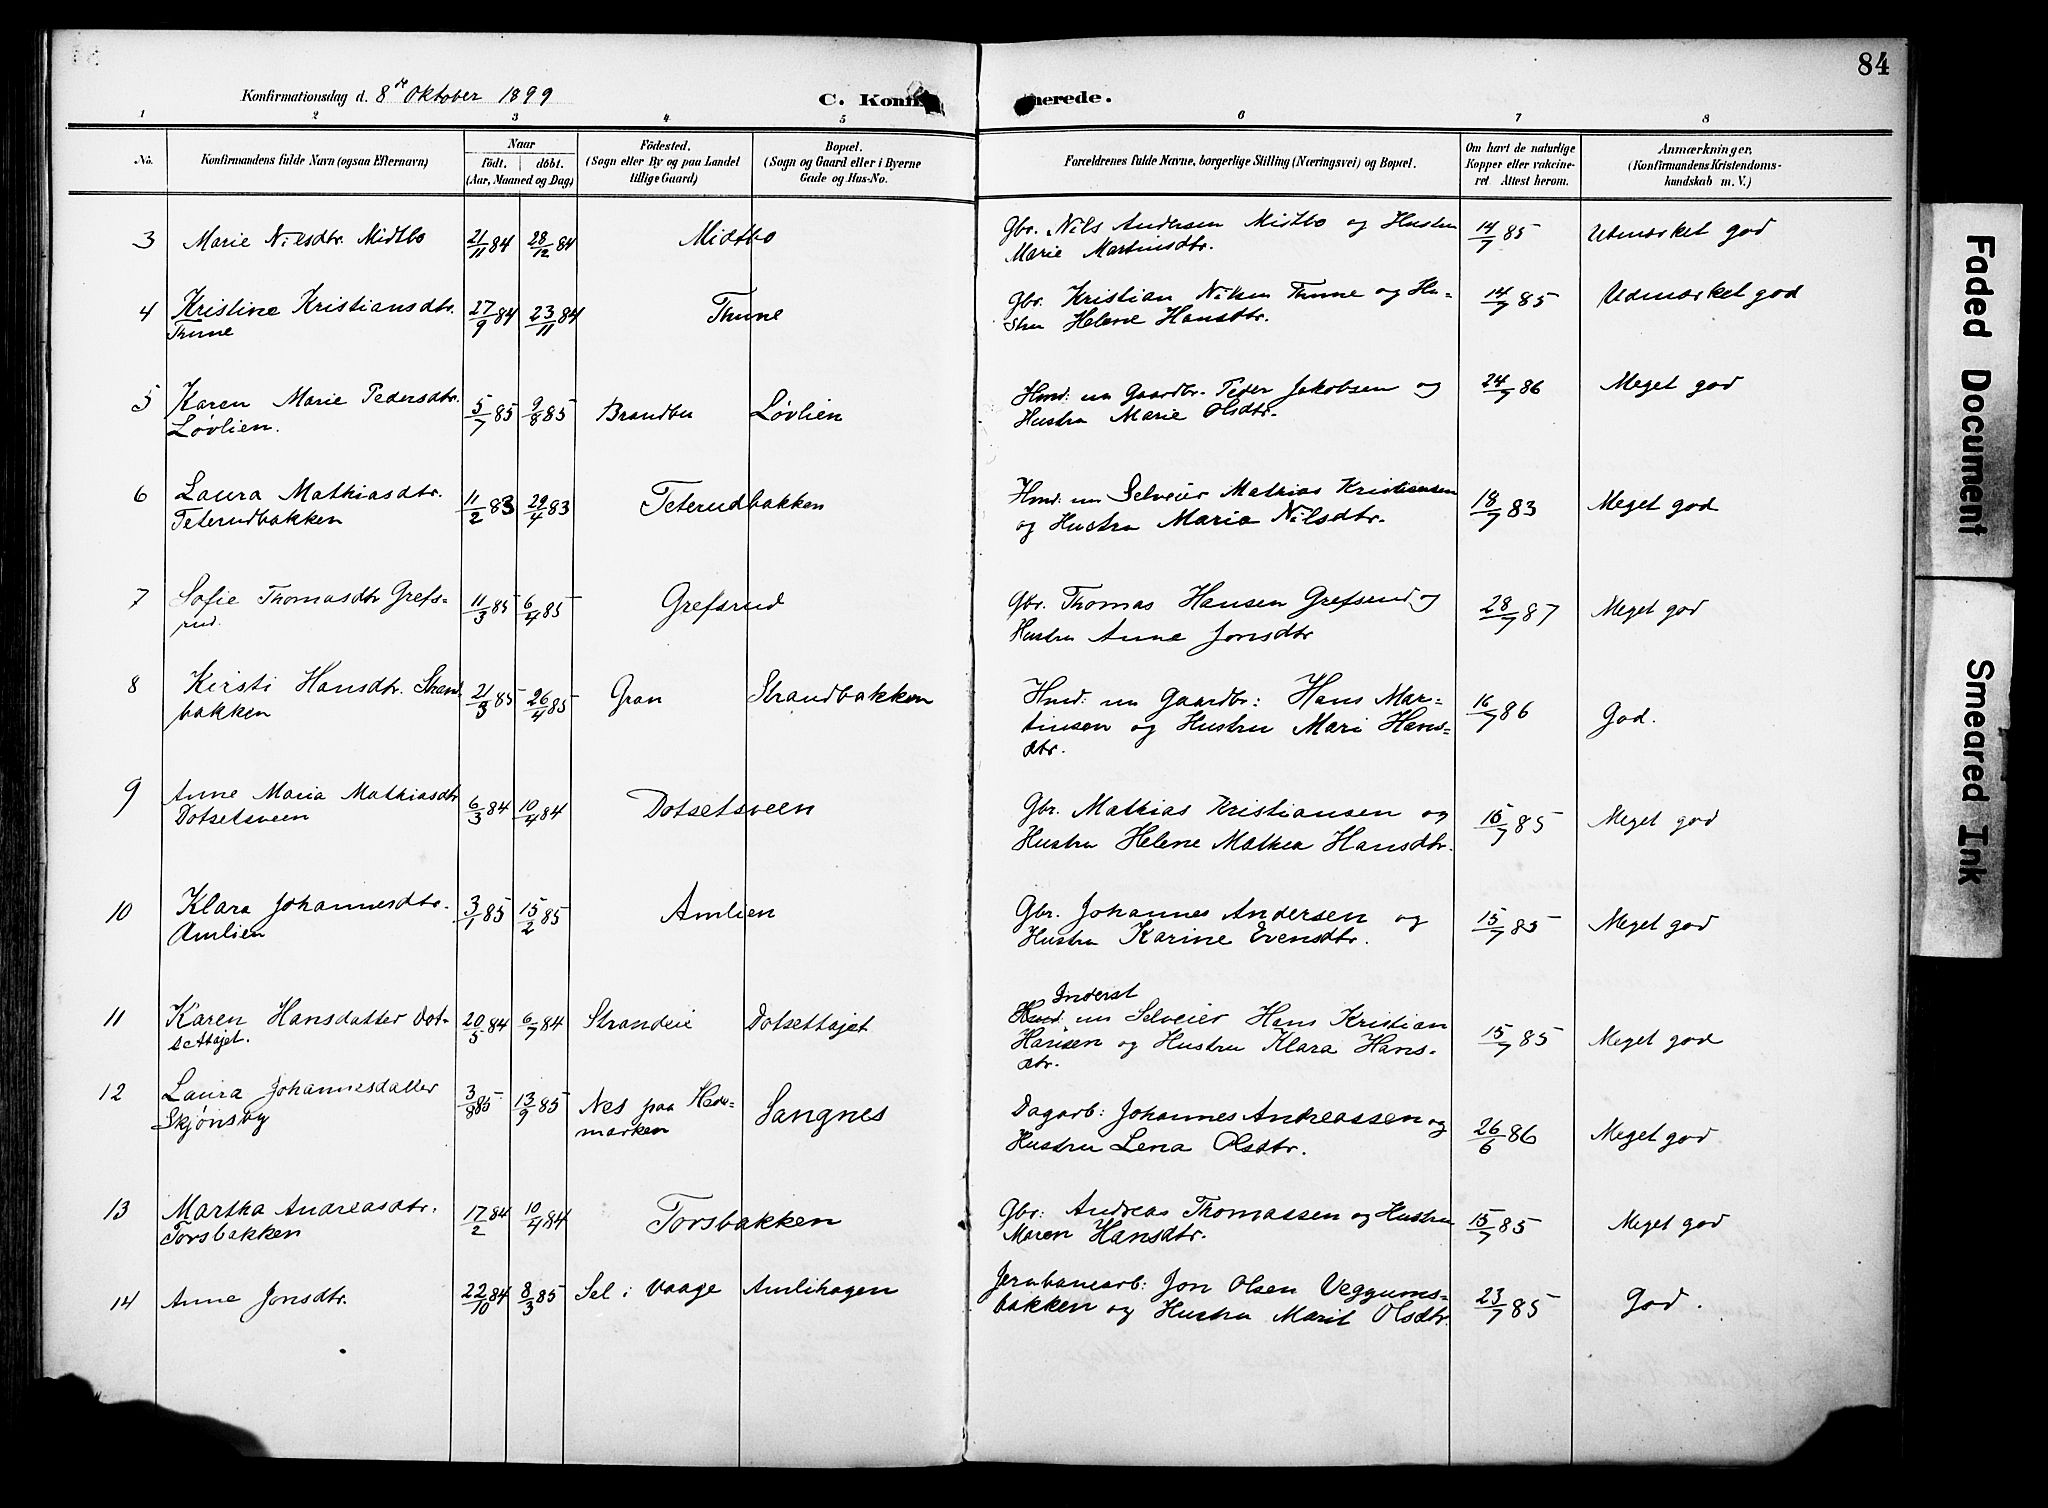 84
Konfirmationsdag d. 8de Oktober 1899
C. Konfirmerede.
1 2 3 4 5 6 7 8
No.
Konfirmandens fulde Navn (ogsaa Efternavn)
Naar
Födt. döbt.
(Aar, Maaned og Dag)
Födested.
(Sogn eller By og paa Landet
tillige Gaard)
Bopæl.
(Sogn og Gaard eller i Byerne
Gade og Hus-No.
Forældrenes fulde Navne, borgerlige Stilling (Næringsvei) og Bopæl.
Om havt de naturlige
Kopper eller vakcine-
ret Attest herom.
Anmærkninger,
(Konfirmandens Kristendoms-
kundskab m. V.)
3 Marie Nilsdtr. Midtbo 21/11 84 28/12 84 Midtbo Gbr. Nils Andersen Midtbo og Hustru 14/7 85 Udmærket god
Marie Martinsdtr.
4 Kristine Kristiansdtr. 27/9 84 23/11 84 Thune Gbr. Kristian Nilsen Thune og Hu- 14/7 85 Udmærket god
Thune stru Helene Hansdtr.
5 Karen Marie Pedersdtr. 5/7 85 9/8 85 Brandbu Løvlien Hmd: un Gaardbr. Peder Jakobsen og 24/7 86 Meget god
Løvlien. Hustru Marie Olsdtr.
6 Laura Mathiasdtr. 11/2 83 29/4 83 Teterudbakken Hmd: un Selveier Mathias Kristiansen 18/7 83 Meget god
Teterudbakken og Hustru Maria Nilsdtr.
7 Sofie Thomasdtr Grefs- 11/3 85 6/4 85 Grefsrud Gbr. Thomas Hansen Grefsrud og 28/7 87 Meget god
rud. Hustru Anne Jonsdtr
8 Kirsti Hansdtr. Strand 21/3 85 26/4 85 Gran Strandbakken Hmd: un Gaardbr: Hans Mar- 16/7 86 God.
bakken tinsen og Hustru Mari Hans-
dtr.
9 Anne Maria Mathiasdtr 6/3 84 10/4 84 Dotsetsveen Gbr. Mathias Kristiansen og 15/7 85 Meget god
Dotsetsveen Hustru Helene Mathea Hansdtr.
10 Klara Johannesdtr. 3/1 85 15/2 85 Amlien Gbr. Johannes Andersen og 15/7 85 Meget god
Amlien Hustru Karine Evensdtr.
Inderst
11 Karen Hansdatter Dot- 20/5 84 6/7 84 Strandeie Dotsettajet Hmd: un Selveier Hans Kristian 15/7 85 Meget god
settajet. Hansen og Hustru Klara Hans-
dtr.
12 Laura Johannesdatter 3/8 85 13/9 85 Nes paa Hede- Sangnes Dagarb: Johannes Andreassen og 26/6 86 Meget god
Skjønsby marken Hustru Lena Olsdtr.
13 Martha Andreasdtr. 17/2 84 10/4 84 Torsbakken Gbr: Andreas Thomassen og Hustru 15/7 85 Meget god
Torsbakken Maren Hansdtr.
14 Anne Jonsdtr. 22/10 84 8/3 85 Sel i Vaage Amlihagen Jernbanearb: Jon Olsen Veggums- 23/7 85 God.
bakken og Hustru Marit Olsdtr.
Faded Document
Smeared Ink